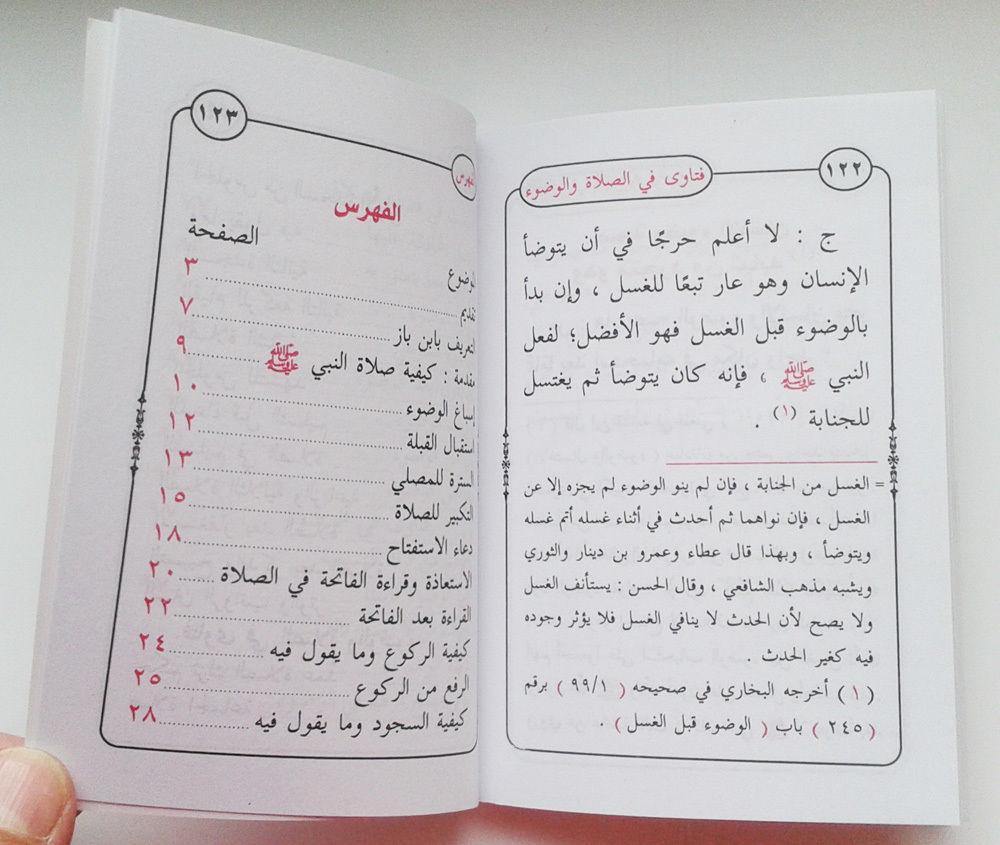 ١٢٢
فتاوى في الصلاة والوضوء
ج : لا أعلم حرجًا في أن يتوضأ
الإنسان وهو عار تبعًا للغسل ، وإن بدأ
بالوضوء قبل الغسل فهو الأفضل؛ لفعل
النبي ﷺ ، فإنه كان يتوضأ ثم يغتسل
للجنابة (١) .
= الغسل من الجنابة ، فإن لم ينو الوضوء لم يجزه إلا عن
الغسل ، فإن نواهما ثم أحدث في أثناء غسله أتم غسله
ويتوضأ ، وبهذا قال عطاء وعمرو بن دينار والثوري
ويشبه مذهب الشافعي ، وقال الحسن : يستأنف الغسل
ولا يصح لأن الحدث لا ينافي الغسل فلا يؤثر وجوده
فيه كغير الحدث .
(١) أخرجه البخاري في صحيحه ( ٩٩/١ ) برقم
( ٢٤٥ ) باب ( الوضوء قبل الغسل )
١٢٣
الفهرس
الفهرس
الصفحة
الموضوع
تقديم ............ ٣
التعريف بابن باز ............ ٧
مقدمة : كيفية صلاة النبي ﷺ ............ ٩
إسباغ الوضوء ............ ١٠
استقبال القبلة ............ ١٢
السترة للمصلي ............ ١٣
التكبير للصلاة ............ ١٥
دعاء الاستفتاح ............ ١٨
الاستعاذة وقراءة الفاتحة في الصلاة ....... ٢٠
القراءة بعد الفاتحة ............ ٢٢
كيفية الركوع وما يقول فيه ............ ٢٤
الرفع من الركوع ............ ٢٥
كيفية السجود وما يقول فيه ............ ٢٨